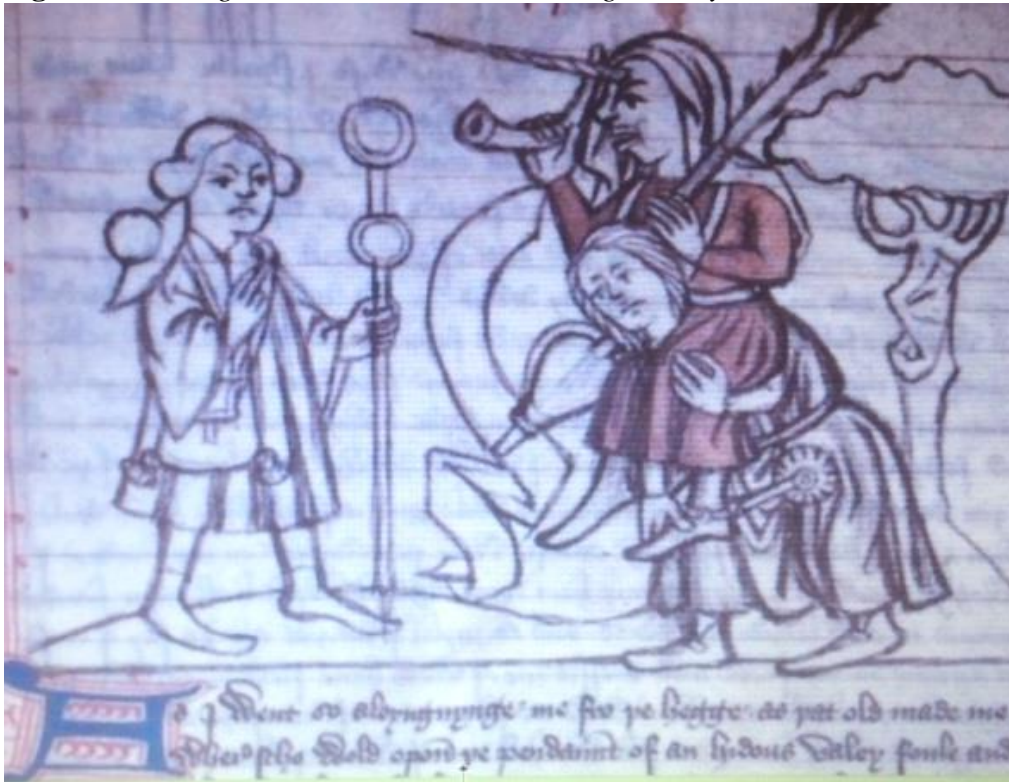 As I Went so aloyngnynge me fro þe hegge as þat old made me
opon þe pendaunt of an hidous Valey foule and